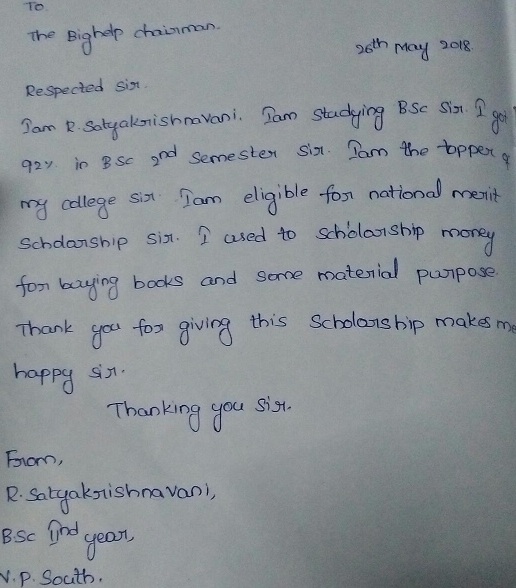 To
The Bighelp chairman.
26th May 2018.
Respected sir.
Iam R. Satyakrishnavani. Iam studying BSc Sir. I got
92% in BSc 2nd semester sir. Iam the topper of
my college sir. Iam eligible for national merit
Scholarship sir. I used to scholarship money
for buying books and some material purpose.
Thank you for giving this Scholarship makes me
happy sir.
Thanking you sir.
From,
R. Satyakrishnavani,
B.Sc IInd year,
V.P. South.